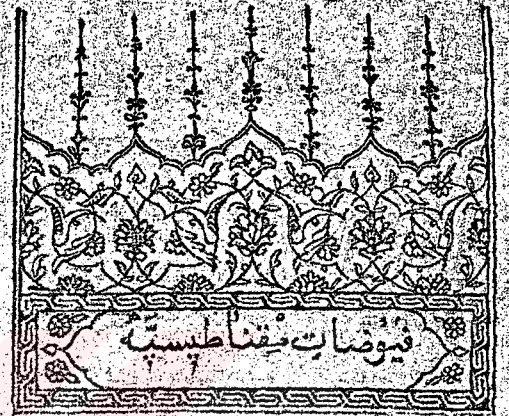 فُيُوضَاتِ مِقْنَاطِيسِيَّه